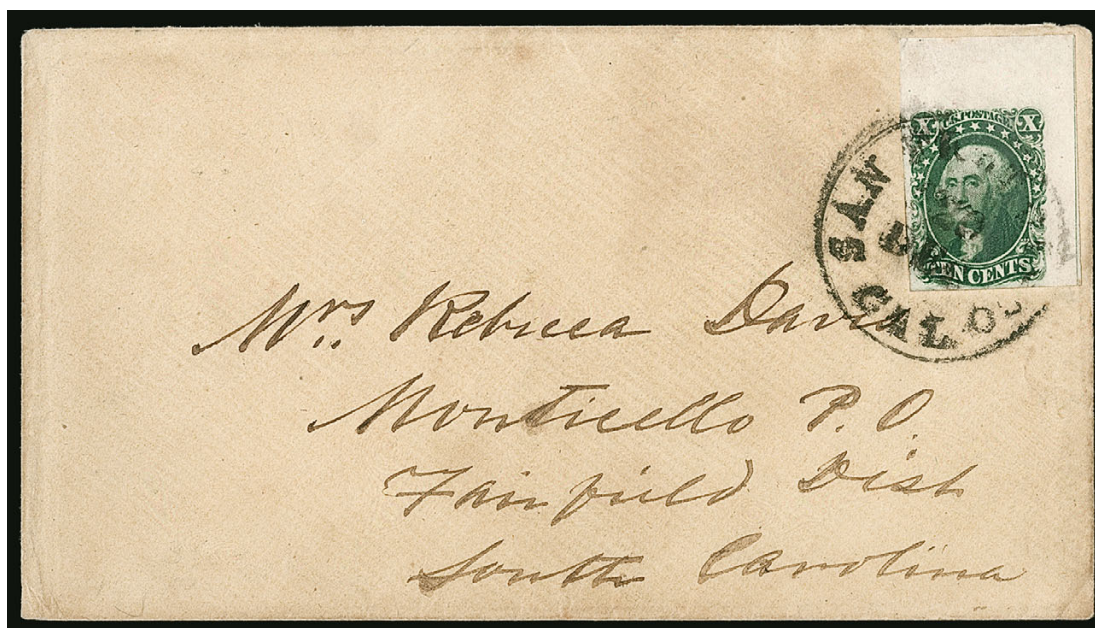 X U.S. POSTAGE X
TEN CENTS
SAN
CAL.
Mrs. Rebecca Davis
Monticello P.O.
Fairfield Dist
South Carolina